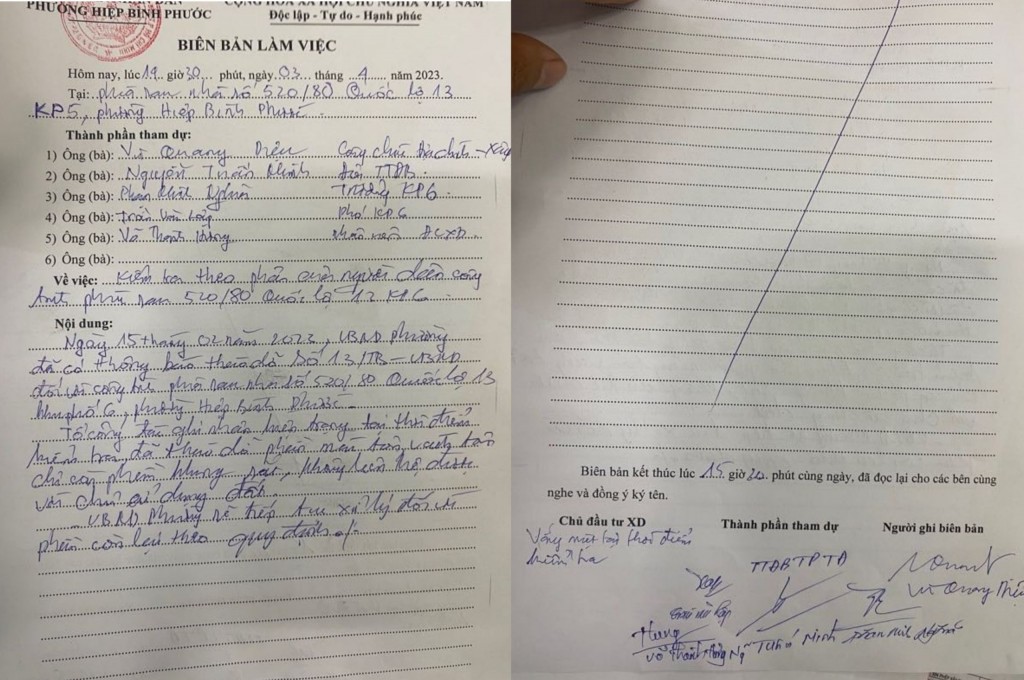 PHƯỜNG HIỆP BÌNH PHƯỚC
CỘNG HÒA XÃ HỘI CHỦ NGHĨA VIỆT NAM
Độc lập - Tự do - Hạnh phúc
BIÊN BẢN LÀM VIỆC
Hôm nay, lúc 14 giờ 30 phút, ngày 03 tháng 4 năm 2023.
Tại: phía nam nhà số 520/80 Quốc lộ 13
KP5, phường Hiệp Bình Phước.
Thành phần tham dự:
1) Ông (bà): Vũ Quang Diệu Công chức Địa chính - Xây
2) Ông (bà): Nguyễn Tuấn Minh Đội TTĐB.
3) Ông (bà): Phan Minh Trưởng KP6.
4) Ông (bà): Trần Văn Phó KP6
5) Ông (bà): Võ Thanh Hùng nhân viên ĐCXD.
6) Ông (bà):
Về việc: Kiểm tra theo phản ánh người dân công
trình phía nam 520/80 Quốc lộ 13 KP6.
Nội dung:
Ngày 15 tháng 02 năm 2023, UBND phường
đã có thông báo tháo dỡ số 13/TB-UBND
đối với công trình phía nam nhà số 520/80 Quốc lộ 13
khu phố 6, phường Hiệp Bình Phước.
Tổ công tác ghi nhận hiện trạng tại thời điểm
kiểm tra, đã tháo dỡ phần mái tôn, vách tôn
chỉ còn phần khung sắt, không liên hệ được
với chủ sử dụng đất.
UBND Phường sẽ tiếp tục xử lý đối với
phần còn lại theo quy định./.
Biên bản kết thúc lúc 15 giờ 30 phút cùng ngày, đã đọc lại cho các bên cùng
nghe và đồng ý ký tên.
Chủ đầu tư XD Thành phần tham dự Người ghi biên bản
Vắng mặt tại thời điểm
kiểm tra
TTĐBTPTĐ
Vũ Quang Diệu
Hung
Võ Thanh Hùng Minh